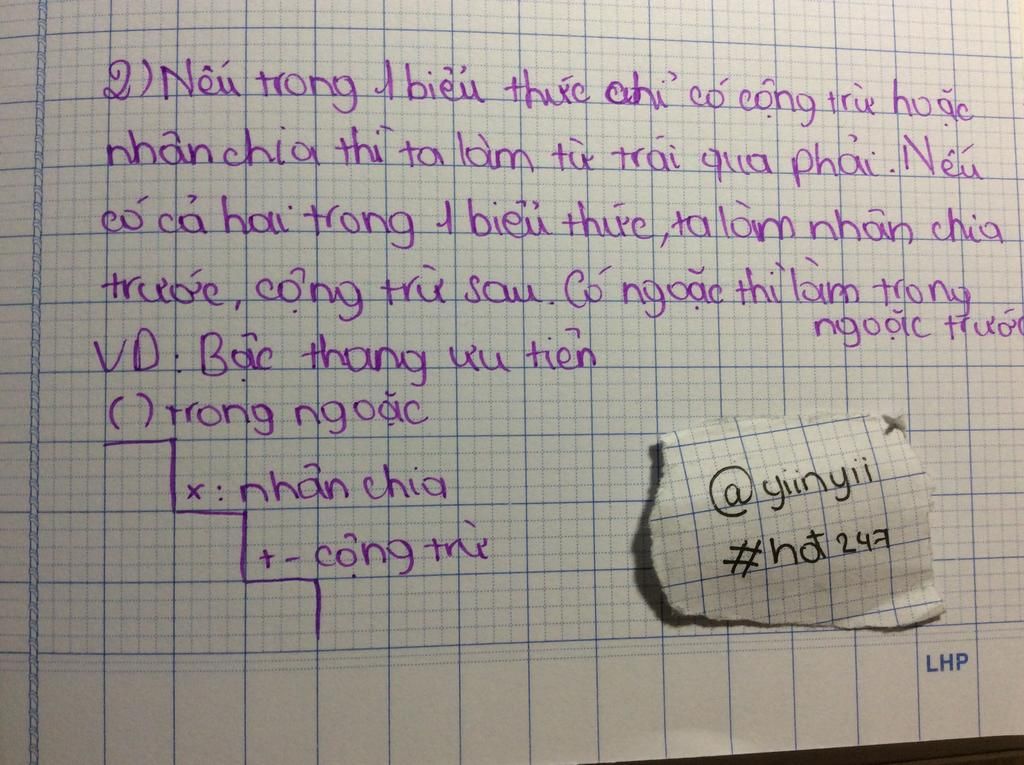 2) Nếu trong 1 biểu thức chỉ có cộng trừ hoặc
nhân chia thì ta làm từ trái qua phải. Nếu
có cả hai trong 1 biểu thức, ta làm nhân chia
trước, cộng trừ sau. Có ngoặc thì làm trong
ngoặc trước
VD: Bậc thang ưu tiên
( ) trong ngoặc
x : nhân chia
+ - cộng trừ
@yiinyii
#hđ247
LHP